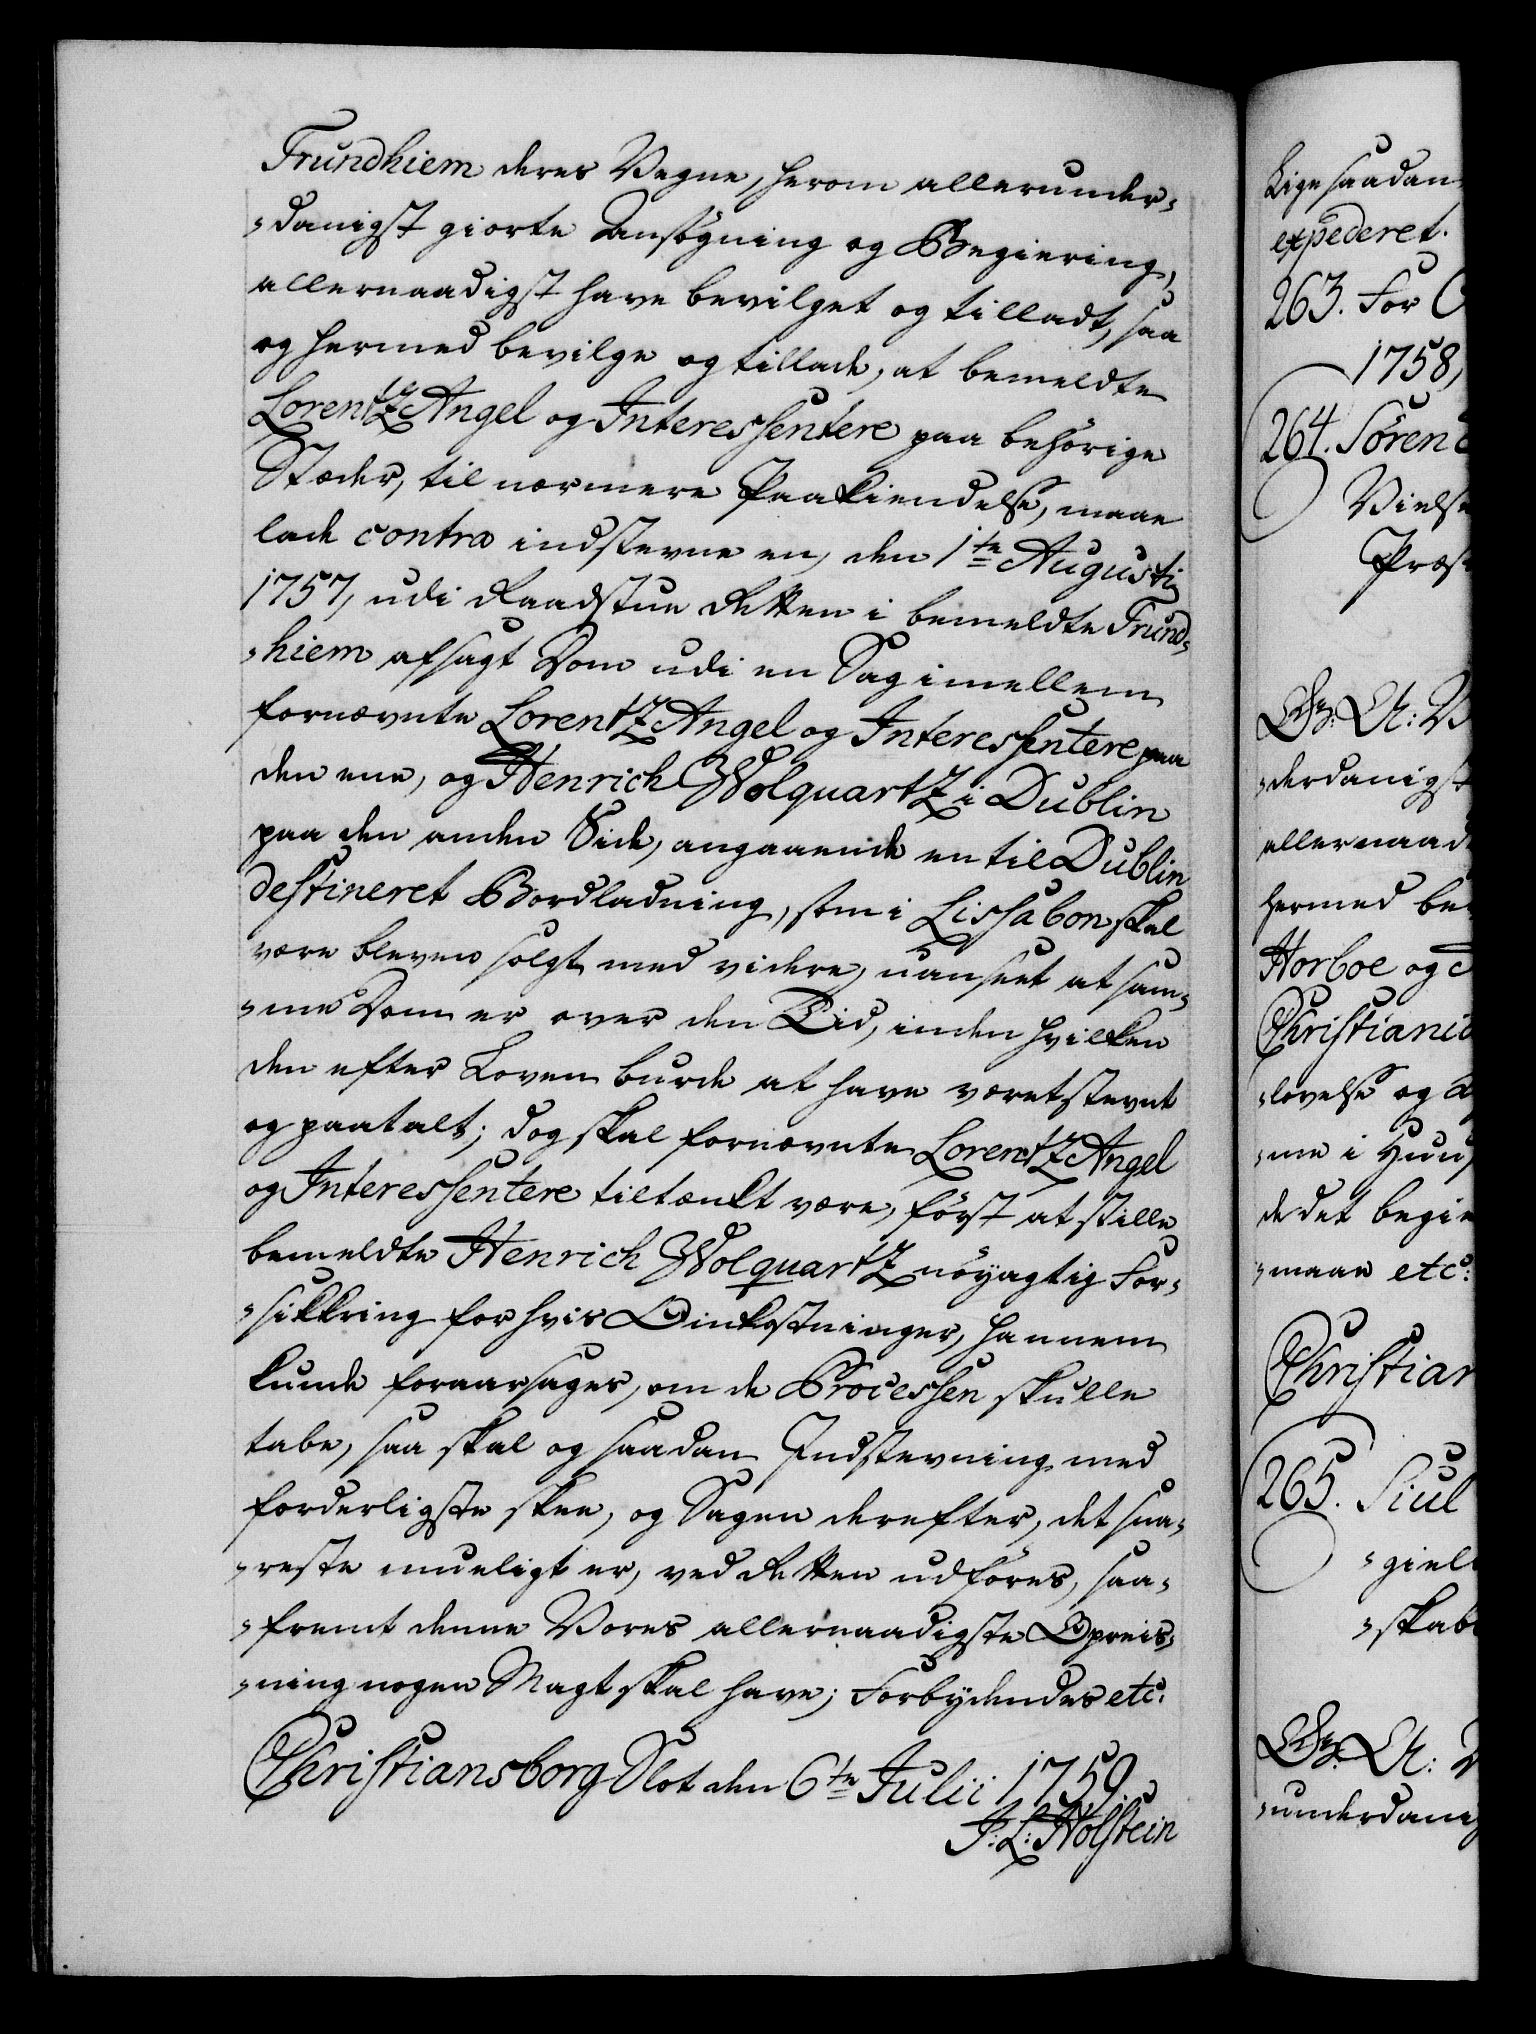 Trundhiem deres Vegne, herom allerunder-
-danigst giorte Ansøgning og Begiering,
allernaadigst have bevilget og tilladt, saa
og hermed bevilge og tillade, at bemeldte
Lorentz Angel og Interessentere paa behörige
Stæder, til nærmere Paakiendelse, maae
lade contra indstevne en, den 1te Augusti
1757, udi Raadstue Retten i bemeldte Trund-
-hiem afsagt Dom udi en Sag imellem
fornævnte Lorentz Angel og Interessentere paa
den eene, og Henrich Wolquartz i Dublin
paa den anden Side, angaaende en til Dublin
destineret Bordladning, som i Lissabon skal
være bleven solgt med videre, uanseet at sam-
-me Dom er over den Tid, inden hvilken
den efter Loven burde at have været stevnt
og paatalt; dog skal fornævnte Lorentz Angel
og Interessentere tiltænkt være, først at stille
bemeldte Henrich Wolquartz nöyagtig For-
-sikkring for hvis Omkostninger, hannem
kunde foraarsages, om de Processen skulle
tabe, saa skal og saadan Indstevning med
forderligste skee, og Sagen derefter, det sna-
-reste mueligt er, ved Retten udföres, saa-
-fremt denne Vores allernaadigste Opreis-
-ning nogen Magt skal have; Forbydendes etc:
Christiansborg Slot den 6te Julii 1759.
J: L: Holstein
Lige saadan
expederet.
263. For
1758,
264. Sören
Vielse
Præst
Gr: A: V
-derdanigst
allernaad
hermed be
Horboe og
Christiani
-lovelse og
-me i Huus
de det begie
-maae etc:
Christian
265. Siul
-giel
-skab
Gr: A: V
-underdanig